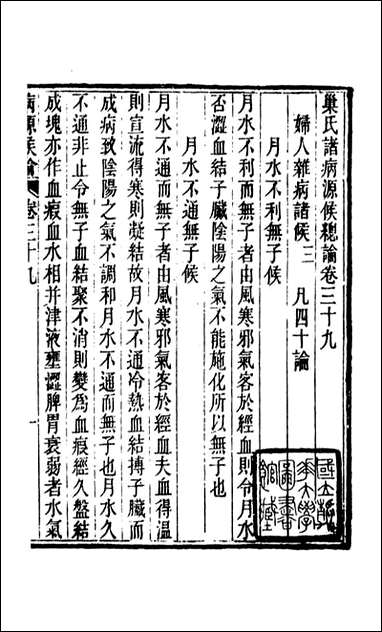 巢氏諸病源候總論卷三十九
婦人雜病諸候三 凡四十論
月水不利無子候
月水不利而無子者由風寒邪氣客於經血則令月水
否澀血結子臟陰陽之氣不能施化所以無子也
月水不通無子候
月水不通而無子者由風寒邪氣客於經血夫血得温
則宣流得寒則凝結故月水不通冷熱血結搏子臟而
成病致陰陽之氣不調和月水不通而無子也月水久
不通非止令無子血結聚不消則變為血瘕經久盤結
成塊亦作血瘕血水相并津液壅澀脾胃衰弱者水氣
病源侯論 卷三十九 一
國立清華大學圖書館藏